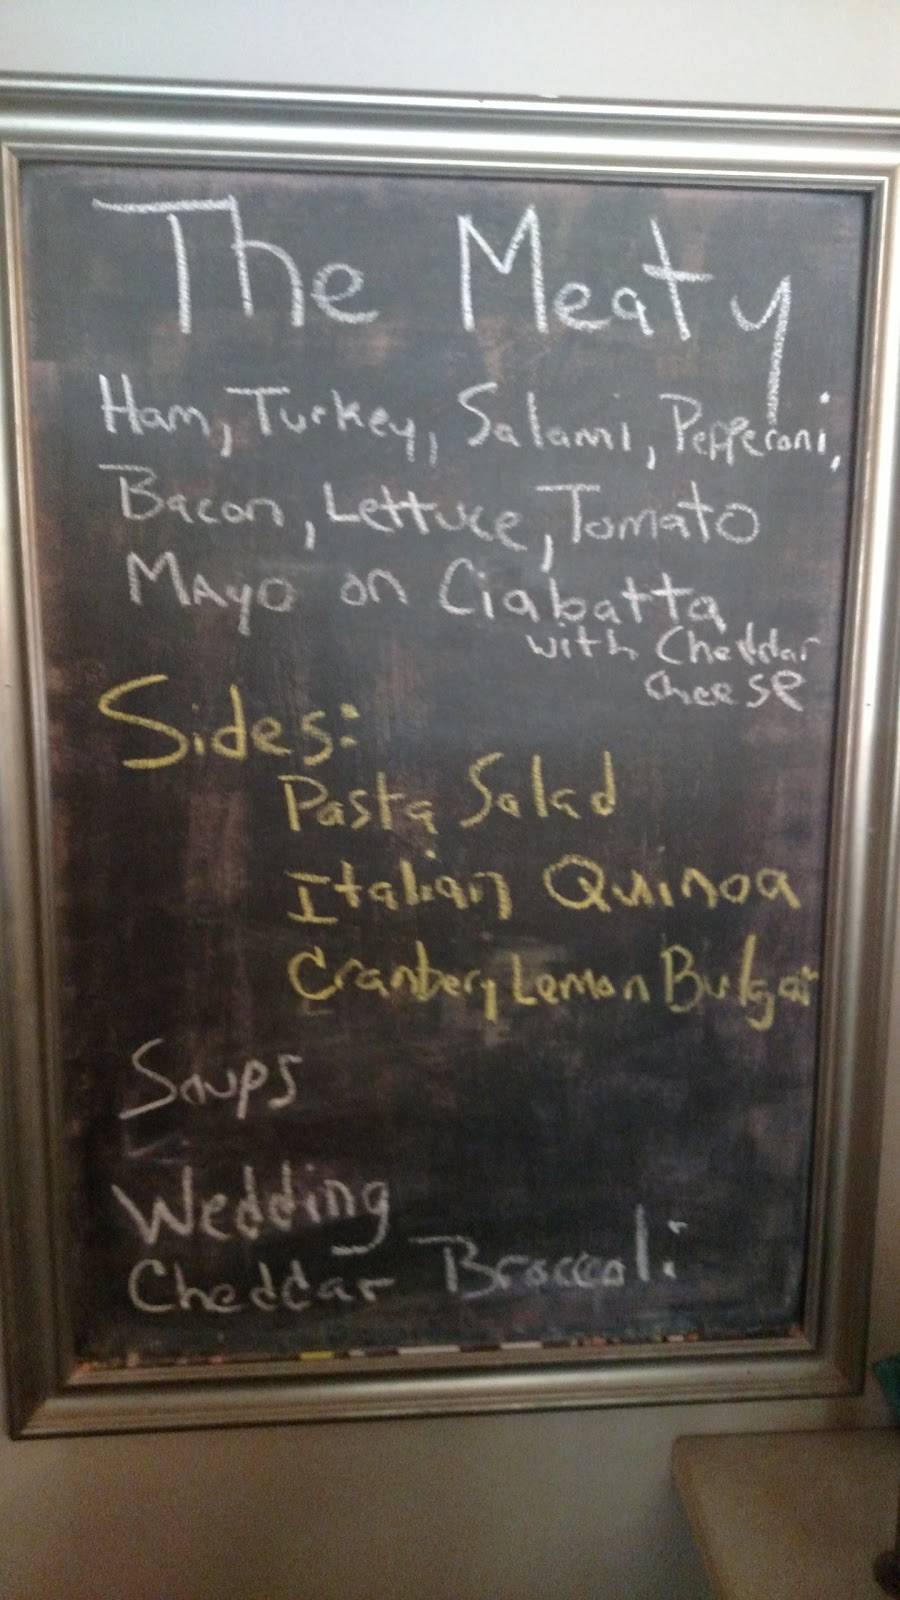 The Meaty
Ham, Turkey, Salami, Pepperoni,
Bacon, Lettuce, Tomato
Mayo on Ciabatta
with Cheddar
cheese
Sides:
Pasta Salad
Italian Quinoa
Cranbery Lemon Bulgar
Soups
Wedding
Cheddar Broccoli